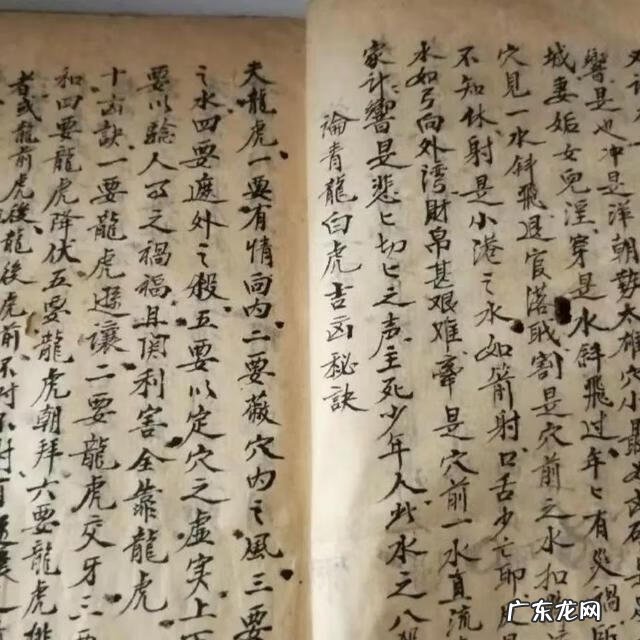 譬是心冲是洋朝勢大雄穴小
城妻妬女兒淫穿是水斜飛過年匕有災禍
穴見一水斜飛退官落賊割是穴前之水扣
不知休射是小港之水如箭射口舌少亡即
水如弓向外湾財帛甚艰难牽是穴前一水直流
家計響是悲匕切匕之声主死少年人此水之八
論青龍白虎吉凶秘訣
夫龍虎一要有情向内二要蔽穴内之風三要
之水四要遮外之殺五要以定穴之虚实上
要以驗人丁之禍福且関利害全靠龍虎
十吉訣一要龍虎遜讓二要龍虎交牙三要
和四要龍虎降伏五要龍虎朝拜六要龍虎
者或龍前虎後龍後虎前不
广东龙网